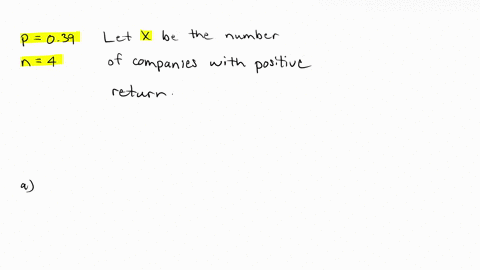 p = 0.39 Let X be the number
n = 4 of companies with positive
return.
a)